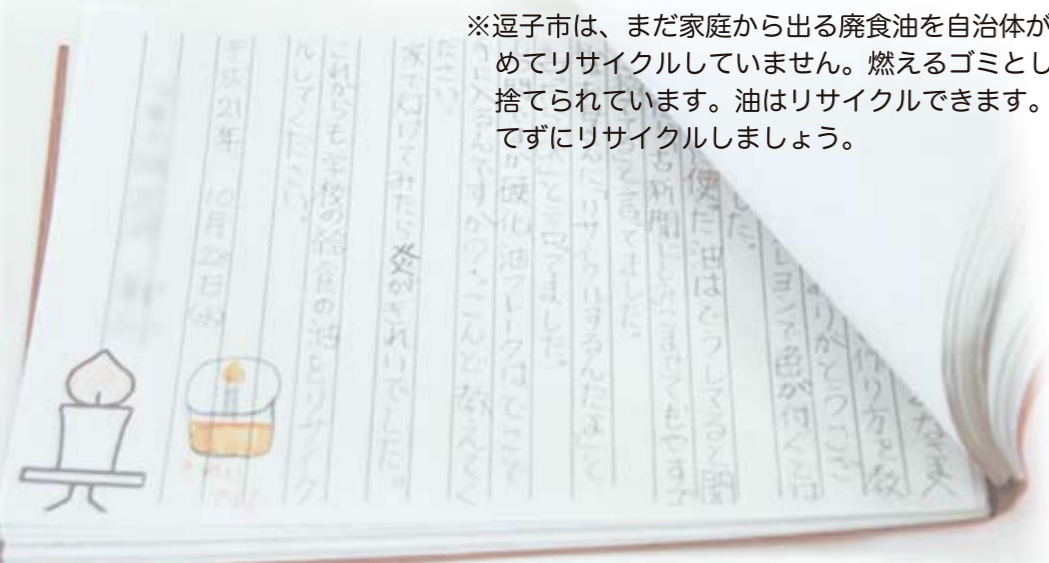 ※逗子市は、まだ家庭から出る廃食油を自治体が
めてリサイクルしていません。燃えるゴミとし
捨てられています。油はリサイクルできます。
てずにリサイクルしましょう。
なさまへ
作り方を教
りがとうござ
レヨンで色が付くとは
した。
使た油はどうしてるて聞
古新聞にしみこませてもやす
て言てました。
リサイクルするんだなて
て言てました。
硬化油フレークはどこで
うんですか?こんど教えてく
ださい。
火を付けてみたら炎がきれいでした。
これからも学校の給食の油をリサイク
ルしてください。
平成21年 10月28日(水)